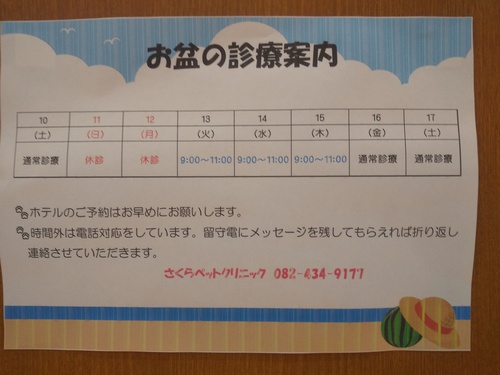 お盆の診療案内
10 11 12 13 14 15 16 17
(土) (日) (月) (火) (水) (木) (金) (土)
通常診療 休診 休診 9:00～11:00 9:00～11:00 9:00～11:00 通常診療 通常診療
ホテルのご予約はお早めにお願いします。
時間外は電話対応をしています。留守電にメッセージを残してもらえれば折り返し
連絡させていただきます。
さくらペットクリニック 082-434-9177